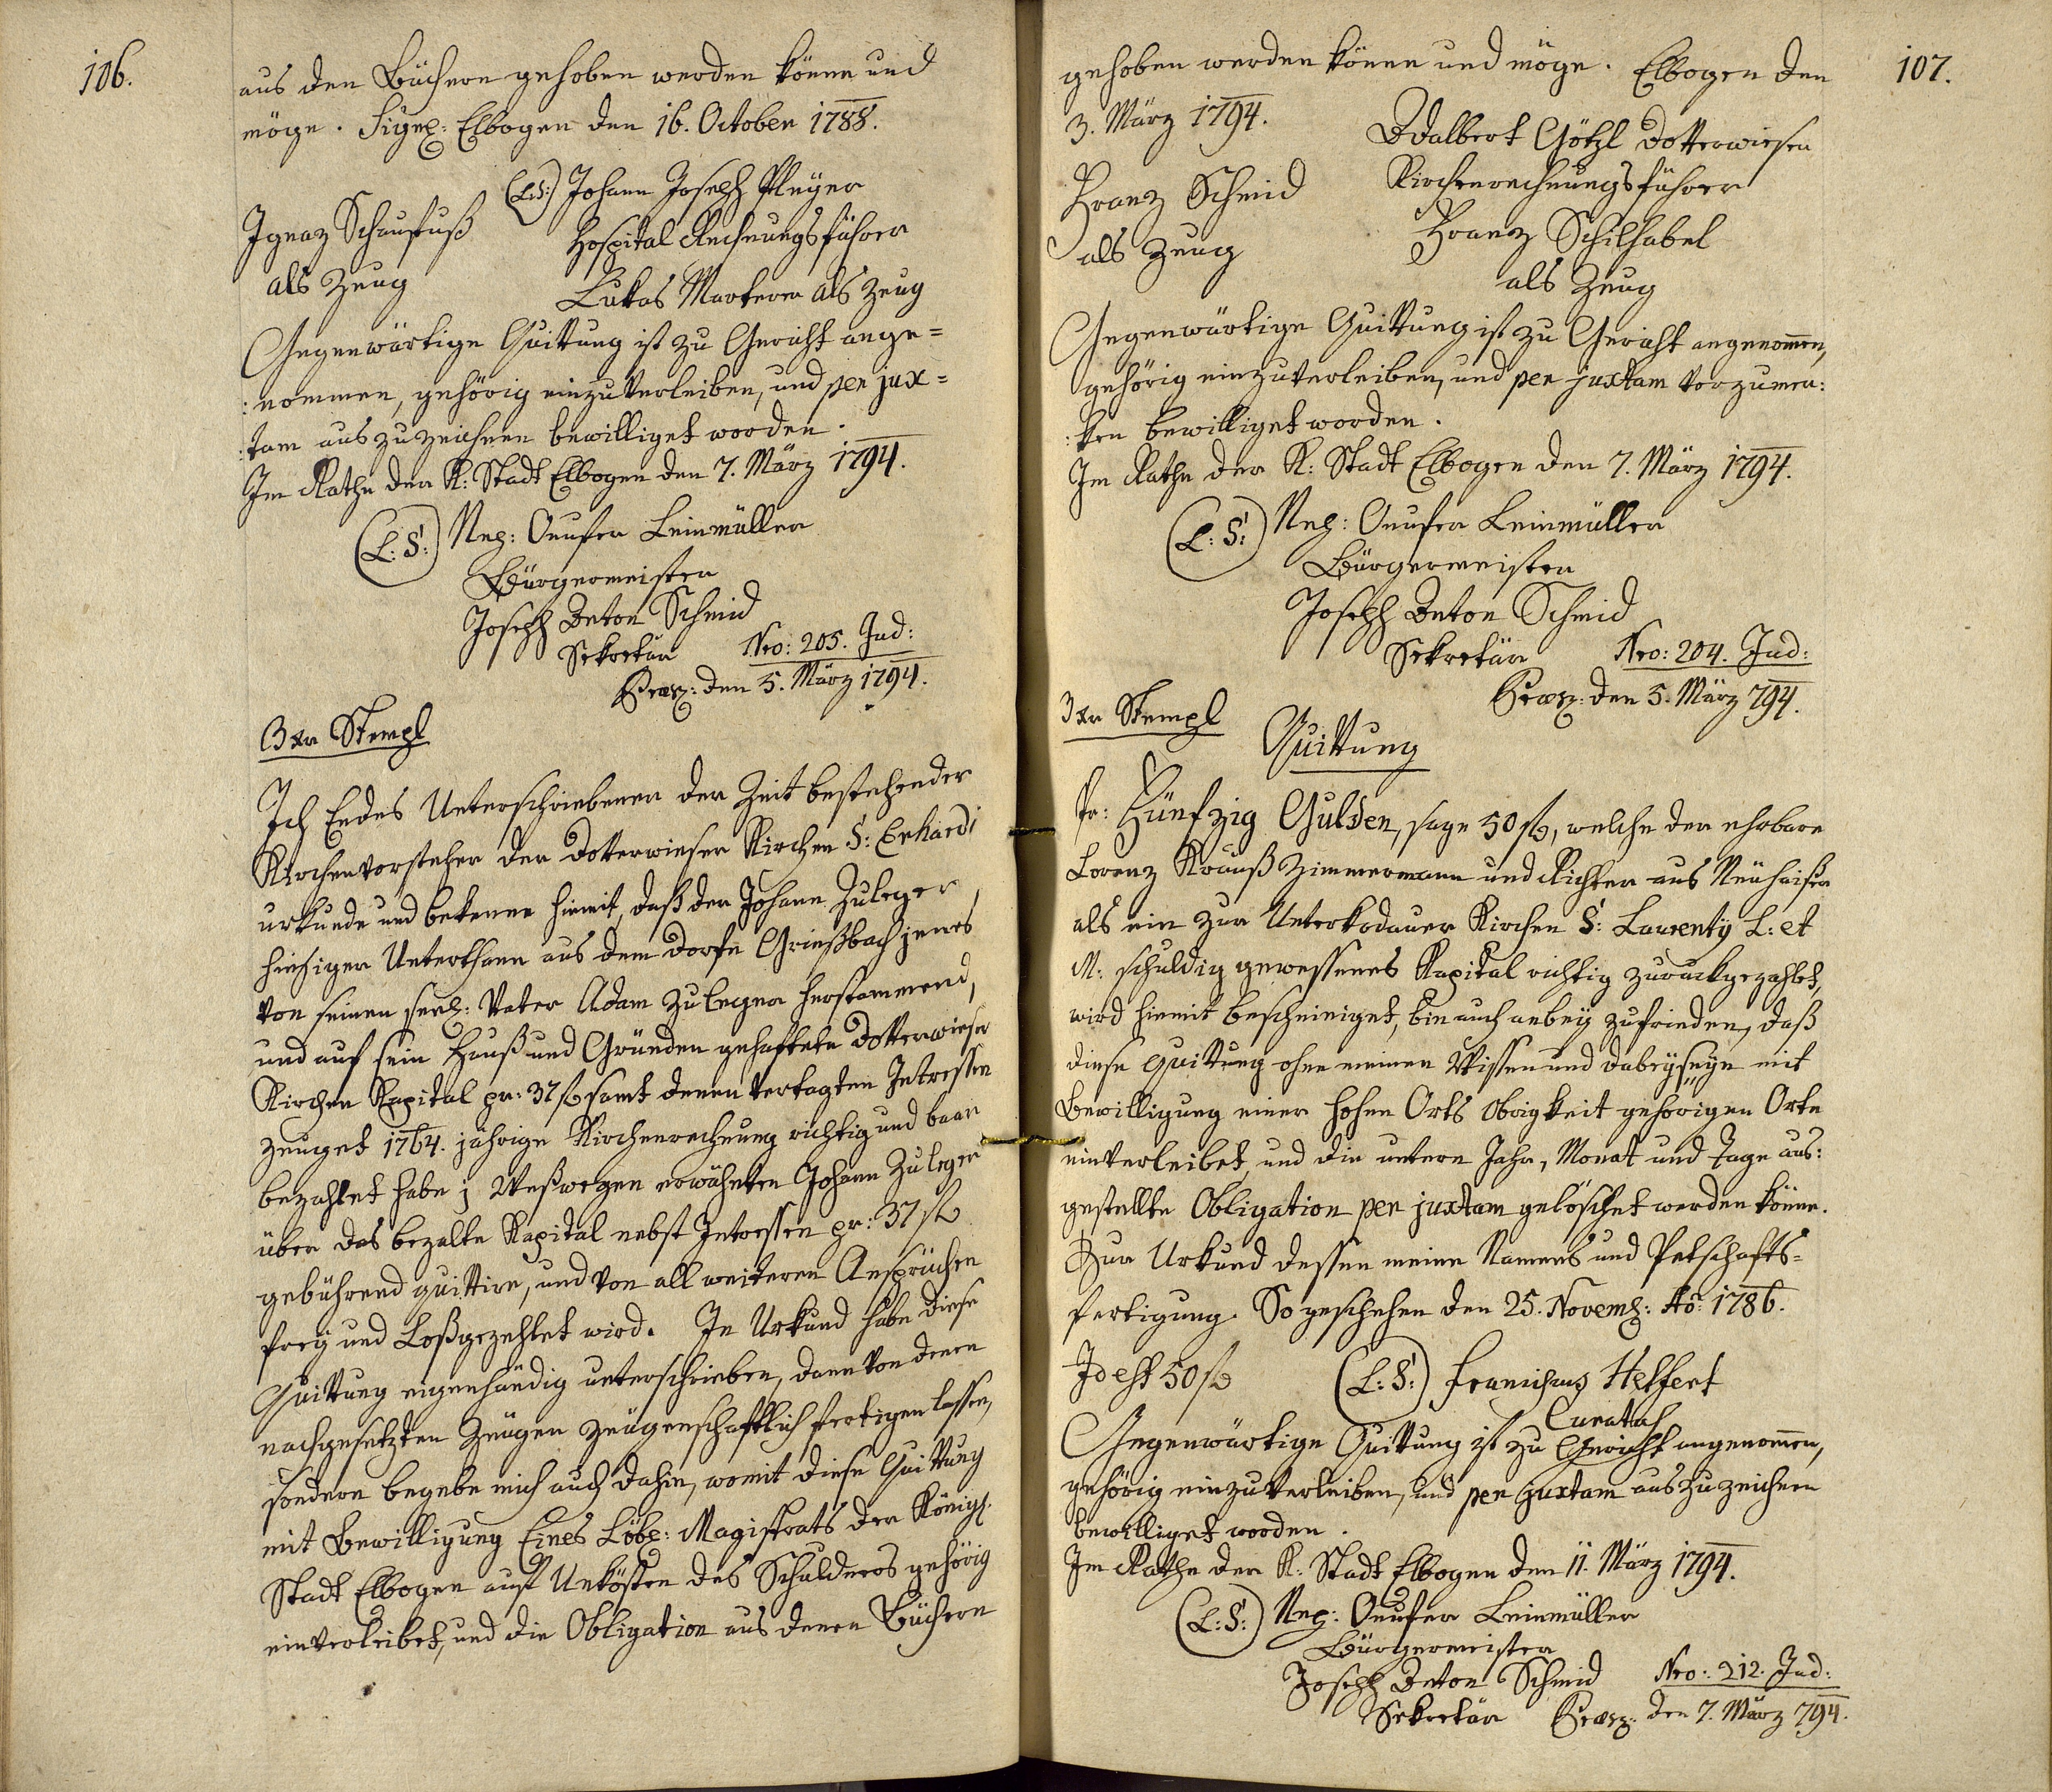 106.
aus den Büchern gehoben werden könne und
möge. Sigl: Elbogen den 16. October 1788.
(L:S:) Johann Joseph Pleyer
Ignaz Schaufuß
Hospital Rechnungsführer
als Zeug
Lukas Markerer als Zeug
Gegenwärtige Quittung ist zu Gericht ange=
:nommen, gehörig einzuverleiben, und per jux=
:tam auszuzeichnen bewilliget worden.
Im Rathe der K: Stadt Elbogen den 7. März 1794.
(L:S:) Nep: Onufer Leinmüller
Bürgermeister
Joseph Anton Schmid
Sekretär
Nro: 205. Jud:
Præs: den 5. März 1794.
3 xr Stempl
Ich Endes Unterschriebener der Zeit bestehender
Kirchenvorsteher der Dotterwieser Kirchen S: Erhardi
urkunde und bekenne hiemit, daß der Johann Zuleger,
hiesiger Unterthann aus dem Dorfe Grießbach jenes
von seinen seel: Vater Adam Zuleger herstammend,
und auf sein Hauß und Gründen gehaftete Dotterwieser
Kirchen Kapital pr: 37 f samt denen vertagten Intressen
zeuget 1764. jährige Kirchenrechnung richtig und baar
bezahlet habe; Weßwegen erwähnten Johann Zuleger
über das bezalte Kapital nebst Intressen pr: 37 f
gebührend quittire, und von all weiteren Ansprüchen
frey und Loßgezehlet wird. In Urkund habe diese
Quittung eigenhändig unterschrieben, dann von denen
nachgesetzten Zeugen zeugenschaftlich fertigen lassen,
sondern begebe mich auch dahin, womit diese Quittung
mit Bewilligung Eines Löbl: Magistrats der Königl:
Stadt Elbogen auf Unkösten des Schuldners gehörig
einverleibet, und die Obligation aus denen Büchern
107.
gehoben werden könne und möge. Elbogen den
3. März 1794.
Adalbert Götzl Dotterwiesen
Kirchenrechnungsführer
Franz Schmid
als Zeug
Franz Schilhabel
als Zeug
Gegenwärtige Quittung ist zu Gericht angenommen,
gehörig einzuverleiben, und per juxtam vorzumer:
:ken bewilliget worden.
Im Rathe der K: Stadt Elbogen den 7. März 1794.
(L:S:) Nep: Onufer Leinmüller
Bürgermeister
Joseph Anton Schmid
Sekretär
Nro: 204. Jud:
Præs: den 5. März 794.
3 xr Stempl
Quittung
Pr: Fünfzig Gulden, sage 50 f, welche der ehrbare
Lorenz Krauß Zimmermann und Richter aus Neuhaiser
als ein zur Unterkodauer Kirchen S: Laurenty L: et
M: schuldig gewessenes Kapital richtig zuruckgezahlet,
wird hiemit bescheiniget, bin auch anbey zufrieden, daß
diese Quittung ohne meinen Wissen und Dabeyseyn mit
Bewilligung einer hohen Orts Obrigkeit gehörigen Orte
einverleibet, und die untern Jahr, Monat und Tage aus:
gestellte Obligation per juxtam gelöschet werden könne.
Zur Urkund dessen meine Namens und Petschafts=
fertigung. So geschehen den 25. Novemb: Ao: 1786.
Id est 50 f
(L:S:) Franciscus Helfert
Curatus
Gegenwärtige Quittung ist zu Gericht angenommen,
gehörig einzuverleiben, und per juxtam auszuzeichnen
bewilliget worden.
Im Rathe der K: Stadt Elbogen den 11. März 1794.
(L:S:) Nep: Onufer Leinmüller
Bürgermeister
Joseph Anton Schmid
Sekretär
Nro: 212. Jud:
Præs: den 7. März 794.